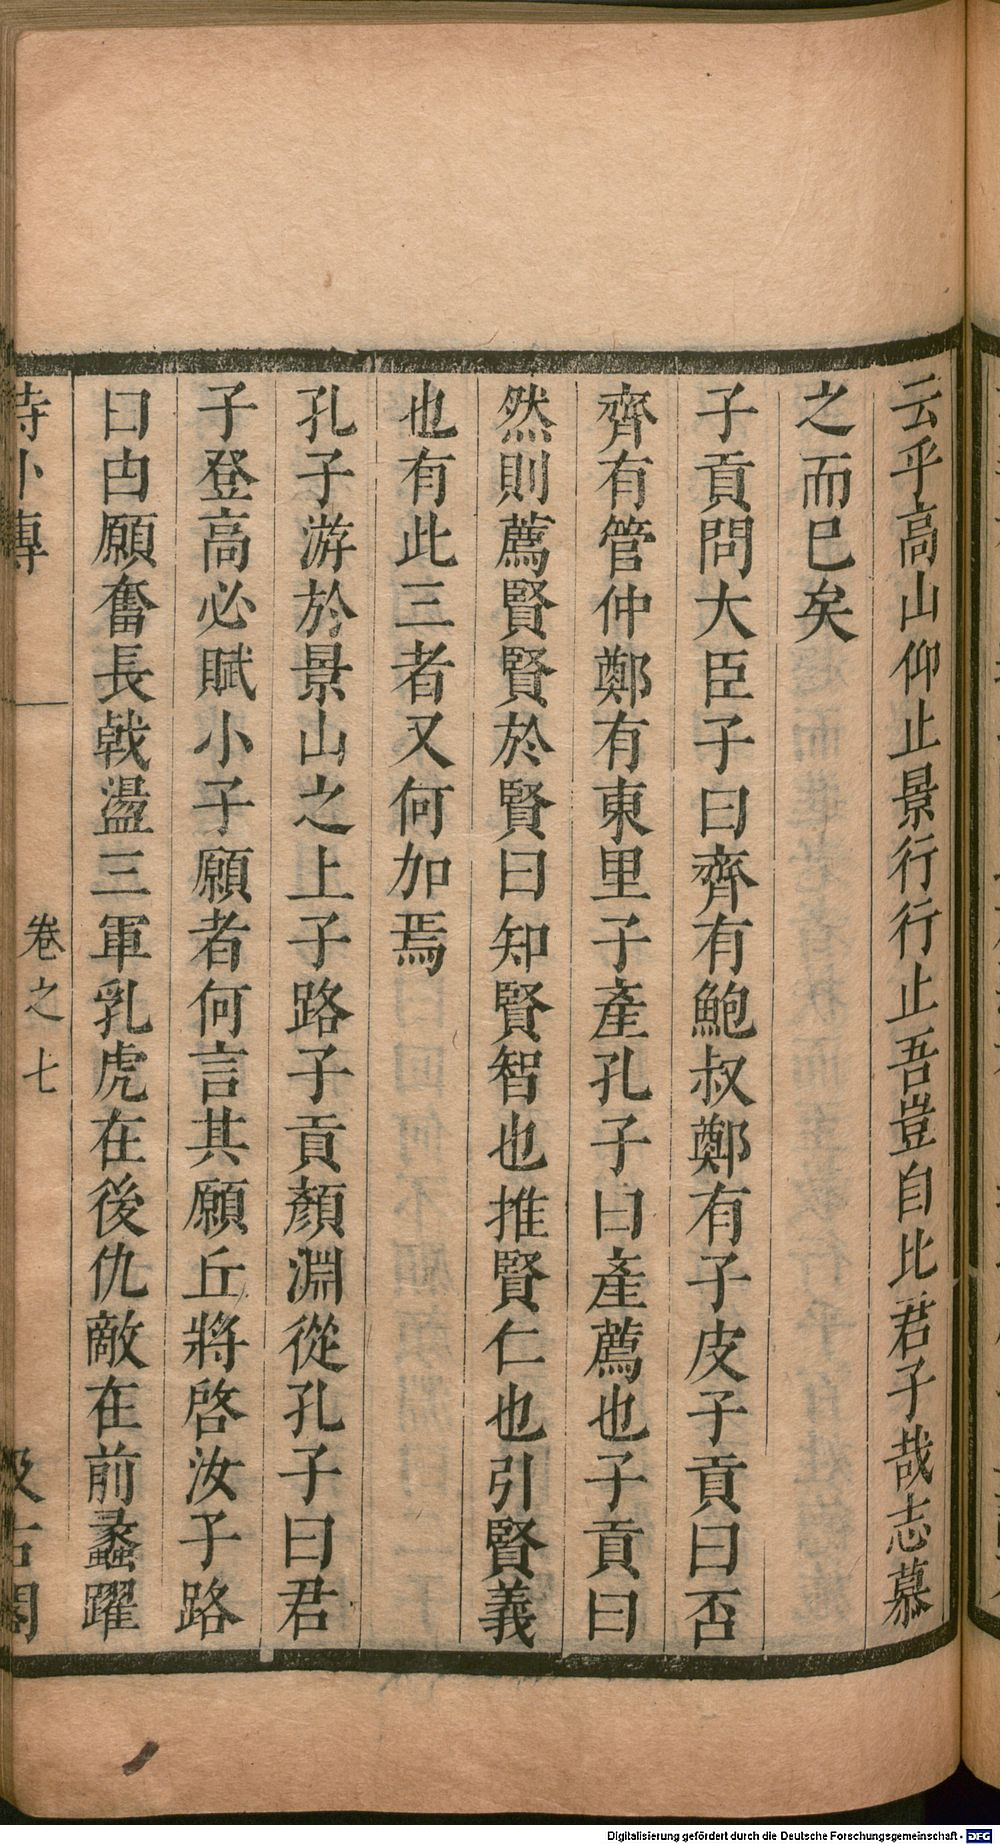 云乎高山仰止景行行止吾豈自比君子哉志慕
之而已矣
子貢問大臣子曰齊有鮑叔鄭有子皮子貢曰否
齊有管仲鄭有東里子產孔子曰產薦也子貢曰
然則薦賢賢於賢曰知賢智也推賢仁也引賢義
也有此三者又何加焉
孔子游於景山之上子路子貢顏淵從孔子曰君
子登高必賦小子願者何言其願丘將啓汝子路
曰由願奮長戟盪三軍乳虎在後仇敵在前蠡躍
詩外傳 卷之七 汲古閣
Digitalisierung gefördert durch die Deutsche Forschungsgemeinschaft - DFG